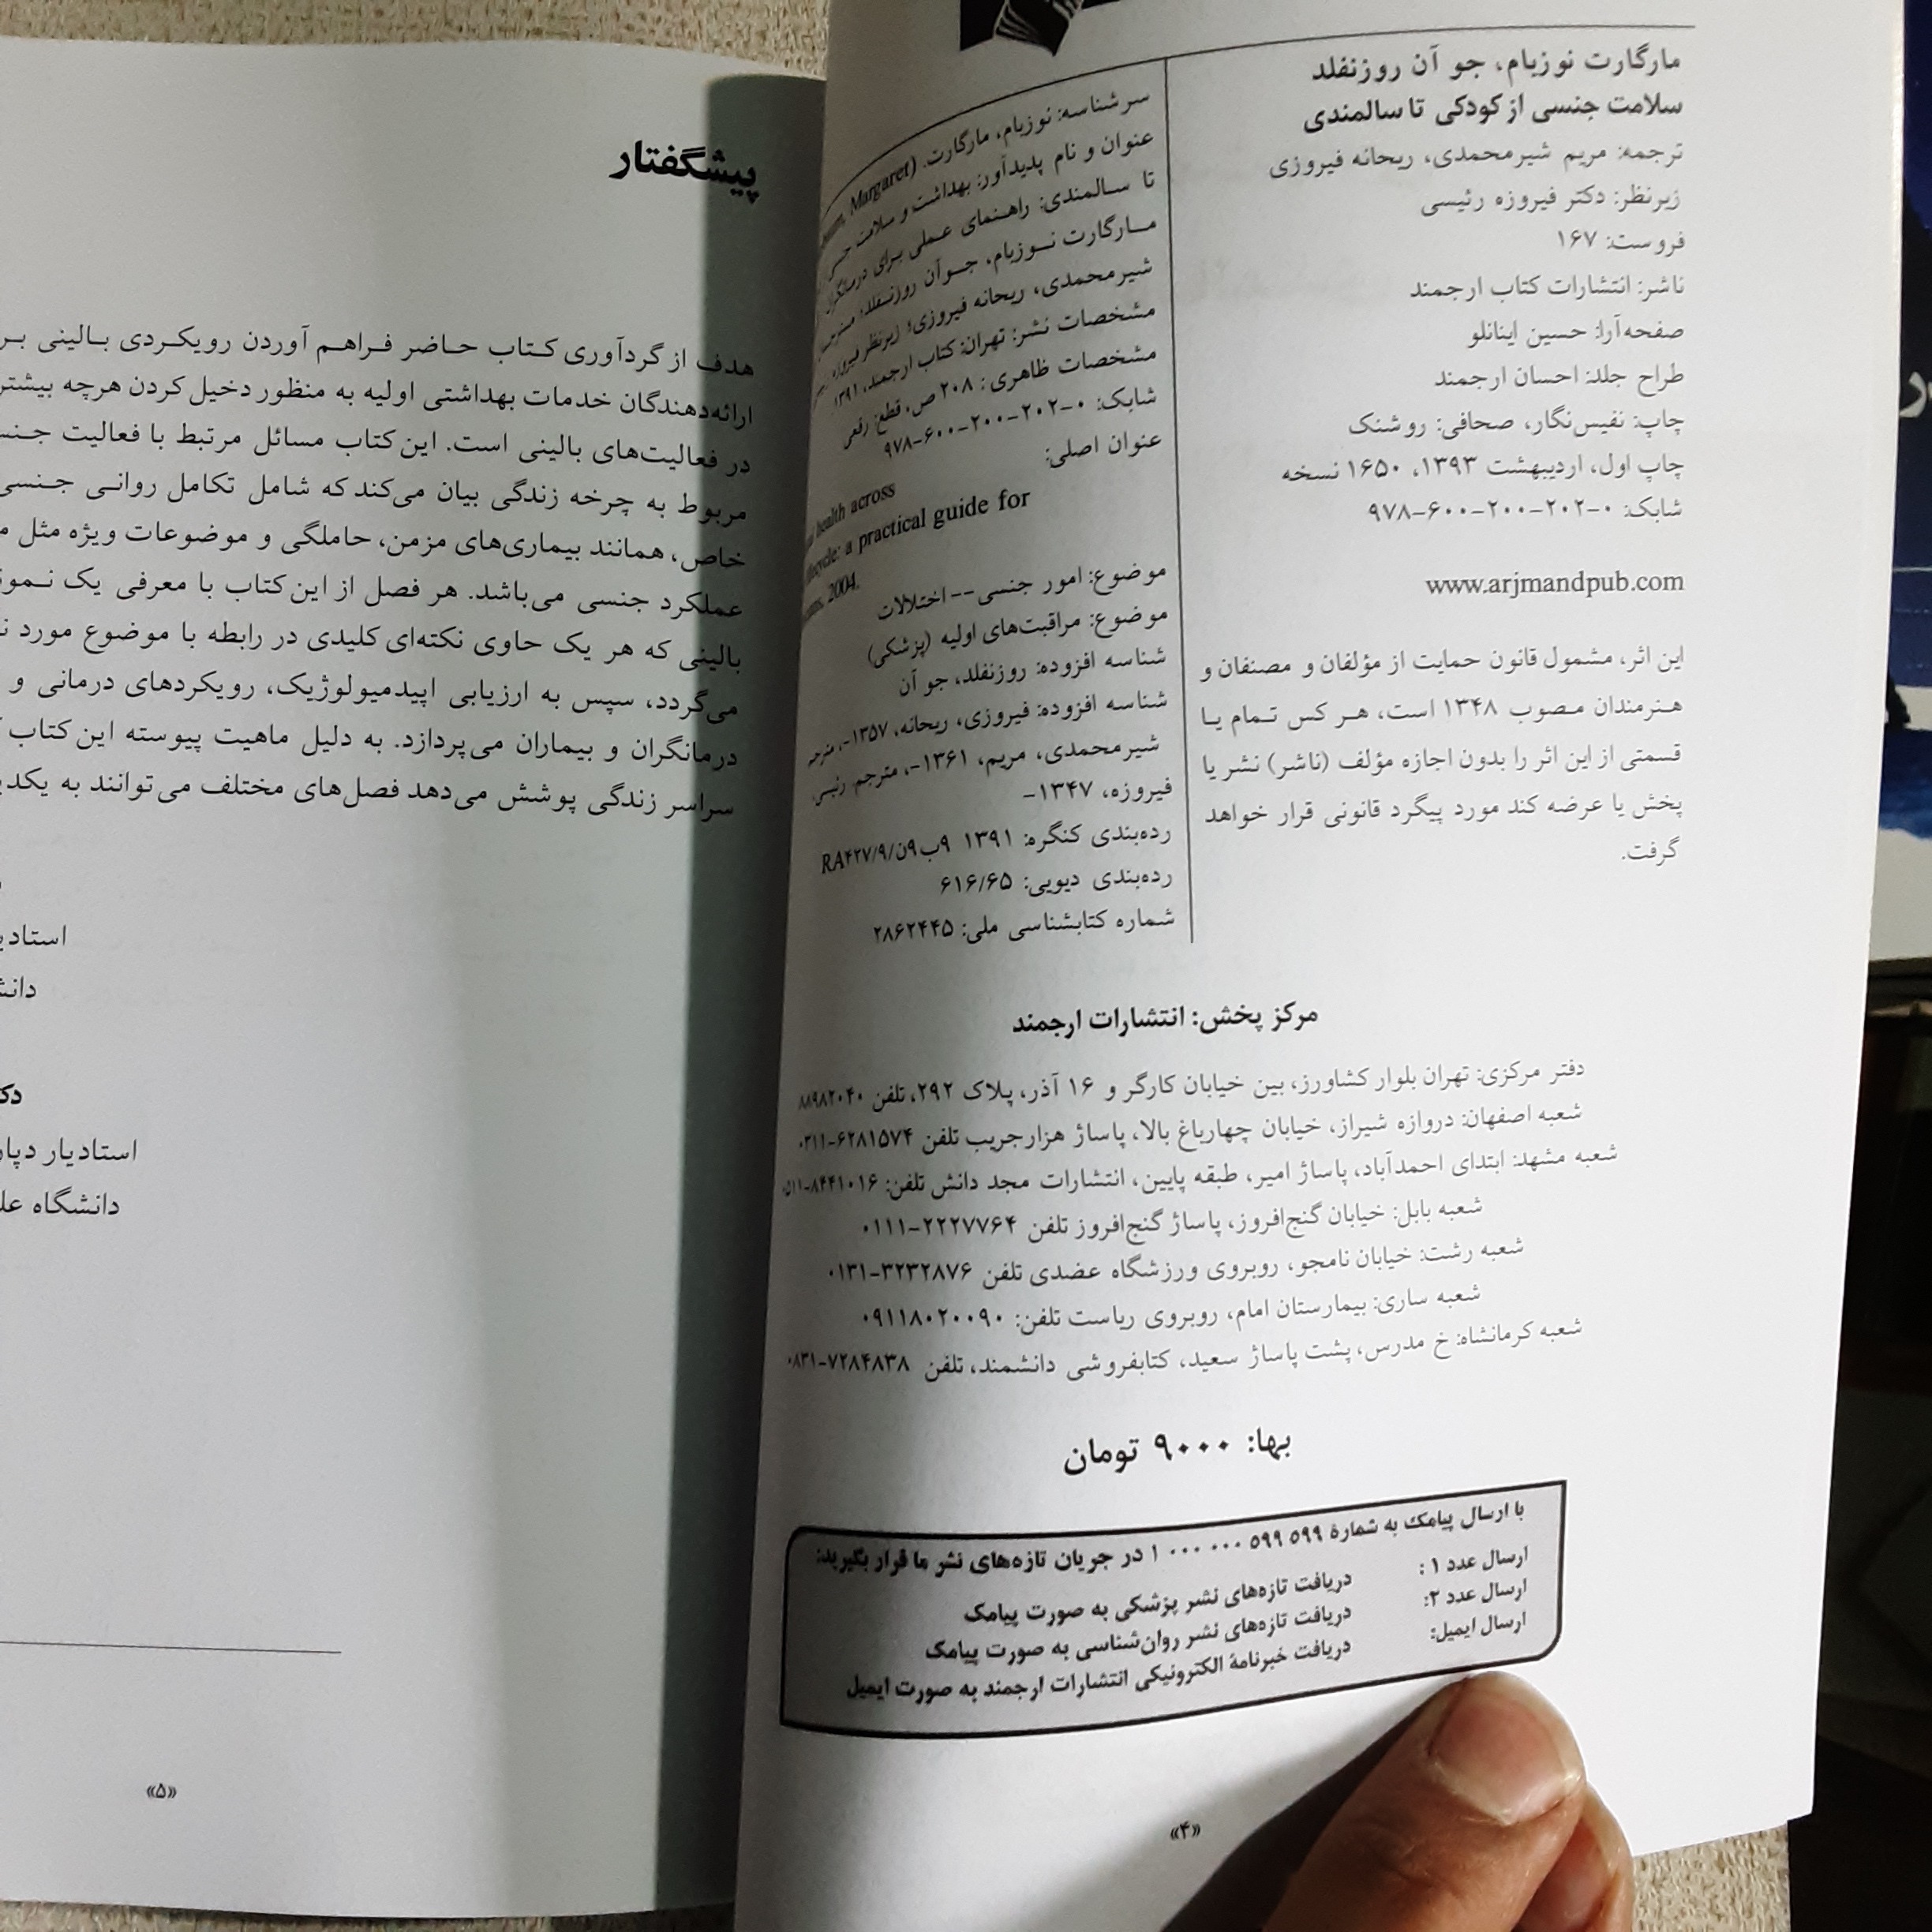 مارگارت نوزبام، جو آن روزنفلد
سلامت جنسی از کودکی تا سالمندی
ترجمه: مریم شیرمحمدی، ریحانه فیروزی
زیرنظر: دکتر فیروزه رئیسی
فروست: ۱۶۷
ناشر: انتشارات کتاب ارجمند
صفحه‌آرا: حسین اینانلو
طراح جلد: احسان ارجمند
چاپ: نفیس‌نگار، صحافی: روشنک
چاپ اول، اردیبهشت ۱۳۹۳، ۱۶۵۰ نسخه
شابک: ۰-۲۰۲-۲۰۰-۶۰۰-۹۷۸
www.arjmandpub.com
این اثر، مشمول قانون حمایت از مؤلفان و مصنفان و
هنرمندان مصوب ۱۳۴۸ است، هر کس تمام یا
قسمتی از این اثر را بدون اجازه مؤلف (ناشر) نشر یا
پخش یا عرضه کند مورد پیگرد قانونی قرار خواهد
گرفت.
سرشناسه: نوزبام، مارگارت. (Margaret
عنوان و نام پدیدآور: بهداشت و سلامت جنسی
تا سالمندی: راهنمای عملی برای درمانگران
مارگارت نوزبام، جوآن روزنفلد؛ مترجمین
شیرمحمدی، ریحانه فیروزی؛ زیرنظر فیروزه
مشخصات نشر: تهران: کتاب ارجمند، ۱۳۹۱.
مشخصات ظاهری: ۲۰۸ ص، قطع: رقعی
شابک: ۰-۲۰۲-۲۰۰-۶۰۰-۹۷۸
عنوان اصلی:
health across
lifecycle: a practical guide for
2004.
موضوع: امور جنسی -- اختلالات
موضوع: مراقبت‌های اولیه (پزشکی)
شناسه افزوده: روزنفلد، جو آن
شناسه افزوده: فیروزی، ریحانه، ۱۳۵۷-، مترجم
شیرمحمدی، مریم، ۱۳۶۱-، مترجم رئیسی
فیروزه، ۱۳۴۷-
رده‌بندی کنگره: ۱۳۹۱ ۹ب۹ن/RA۴۲۷/۹
رده‌بندی دیویی: ۶۱۶/۶۵
شماره کتابشناسی ملی: ۲۸۶۲۴۴۵
مرکز پخش: انتشارات ارجمند
دفتر مرکزی: تهران بلوار کشاورز، بین خیابان کارگر و ۱۶ آذر، پلاک ۲۹۲، تلفن ۸۸۹۸۲۰۴۰
شعبه اصفهان: دروازه شیراز، خیابان چهارباغ بالا، پاساژ هزارجریب تلفن ۶۲۸۱۵۷۴-۰۳۱۱
شعبه مشهد: ابتدای احمدآباد، پاساژ امیر، طبقه پایین، انتشارات مجد دانش تلفن: ۸۴۴۱۰۱۶-۰۵۱۱
شعبه بابل: خیابان گنج‌افروز، پاساژ گنج‌افروز تلفن ۲۲۲۷۷۶۴-۰۱۱۱
شعبه رشت: خیابان نامجو، روبروی ورزشگاه عضدی تلفن ۳۲۳۲۸۷۶-۰۱۳۱
شعبه ساری: بیمارستان امام، روبروی ریاست تلفن: ۰۹۱۱۸۰۲۰۰۹۰
شعبه کرمانشاه: خ مدرس، پشت پاساژ سعید، کتابفروشی دانشمند، تلفن ۷۲۸۴۸۳۸-۰۸۳۱
بها: ۹۰۰۰ تومان
با ارسال پیامک به شمارۀ ۵۹۹ ۵۹۹ ۰۰۰ ۰۰۰ ۱ در جریان تازه‌های نشر ما قرار بگیرید:
ارسال عدد ۱: دریافت تازه‌های نشر پزشکی به صورت پیامک
ارسال عدد ۲: دریافت تازه‌های نشر روان‌شناسی به صورت پیامک
ارسال ایمیل: دریافت خبرنامۀ الکترونیکی انتشارات ارجمند به صورت ایمیل
«۴»
پیشگفتار
هدف از گردآوری کتاب حاضر فراهم آوردن رویکردی بالینی
ارائه‌دهندگان خدمات بهداشتی اولیه به منظور دخیل کردن هرچه بیشتر
در فعالیت‌های بالینی است. این کتاب مسائل مرتبط با فعالیت
مربوط به چرخه زندگی بیان می‌کند که شامل تکامل روانی جنسی
خاص، همانند بیماری‌های مزمن، حاملگی و موضوعات ویژه مثل
عملکرد جنسی می‌باشد. هر فصل از این کتاب با معرفی یک
بالینی که هر یک حاوی نکته‌ای کلیدی در رابطه با موضوع مورد
می‌گردد، سپس به ارزیابی اپیدمیولوژیک، رویکردهای درمانی و
درمانگران و بیماران می‌پردازد. به دلیل ماهیت پیوسته این کتاب
سراسر زندگی پوشش می‌دهد فصل‌های مختلف می‌توانند به
استادیار
استادیار
دانشگاه
«۵»